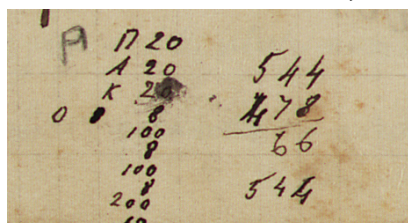 П 20
А 20
К 20
О 8 8
100
8
100
8
200
544
478
66
544